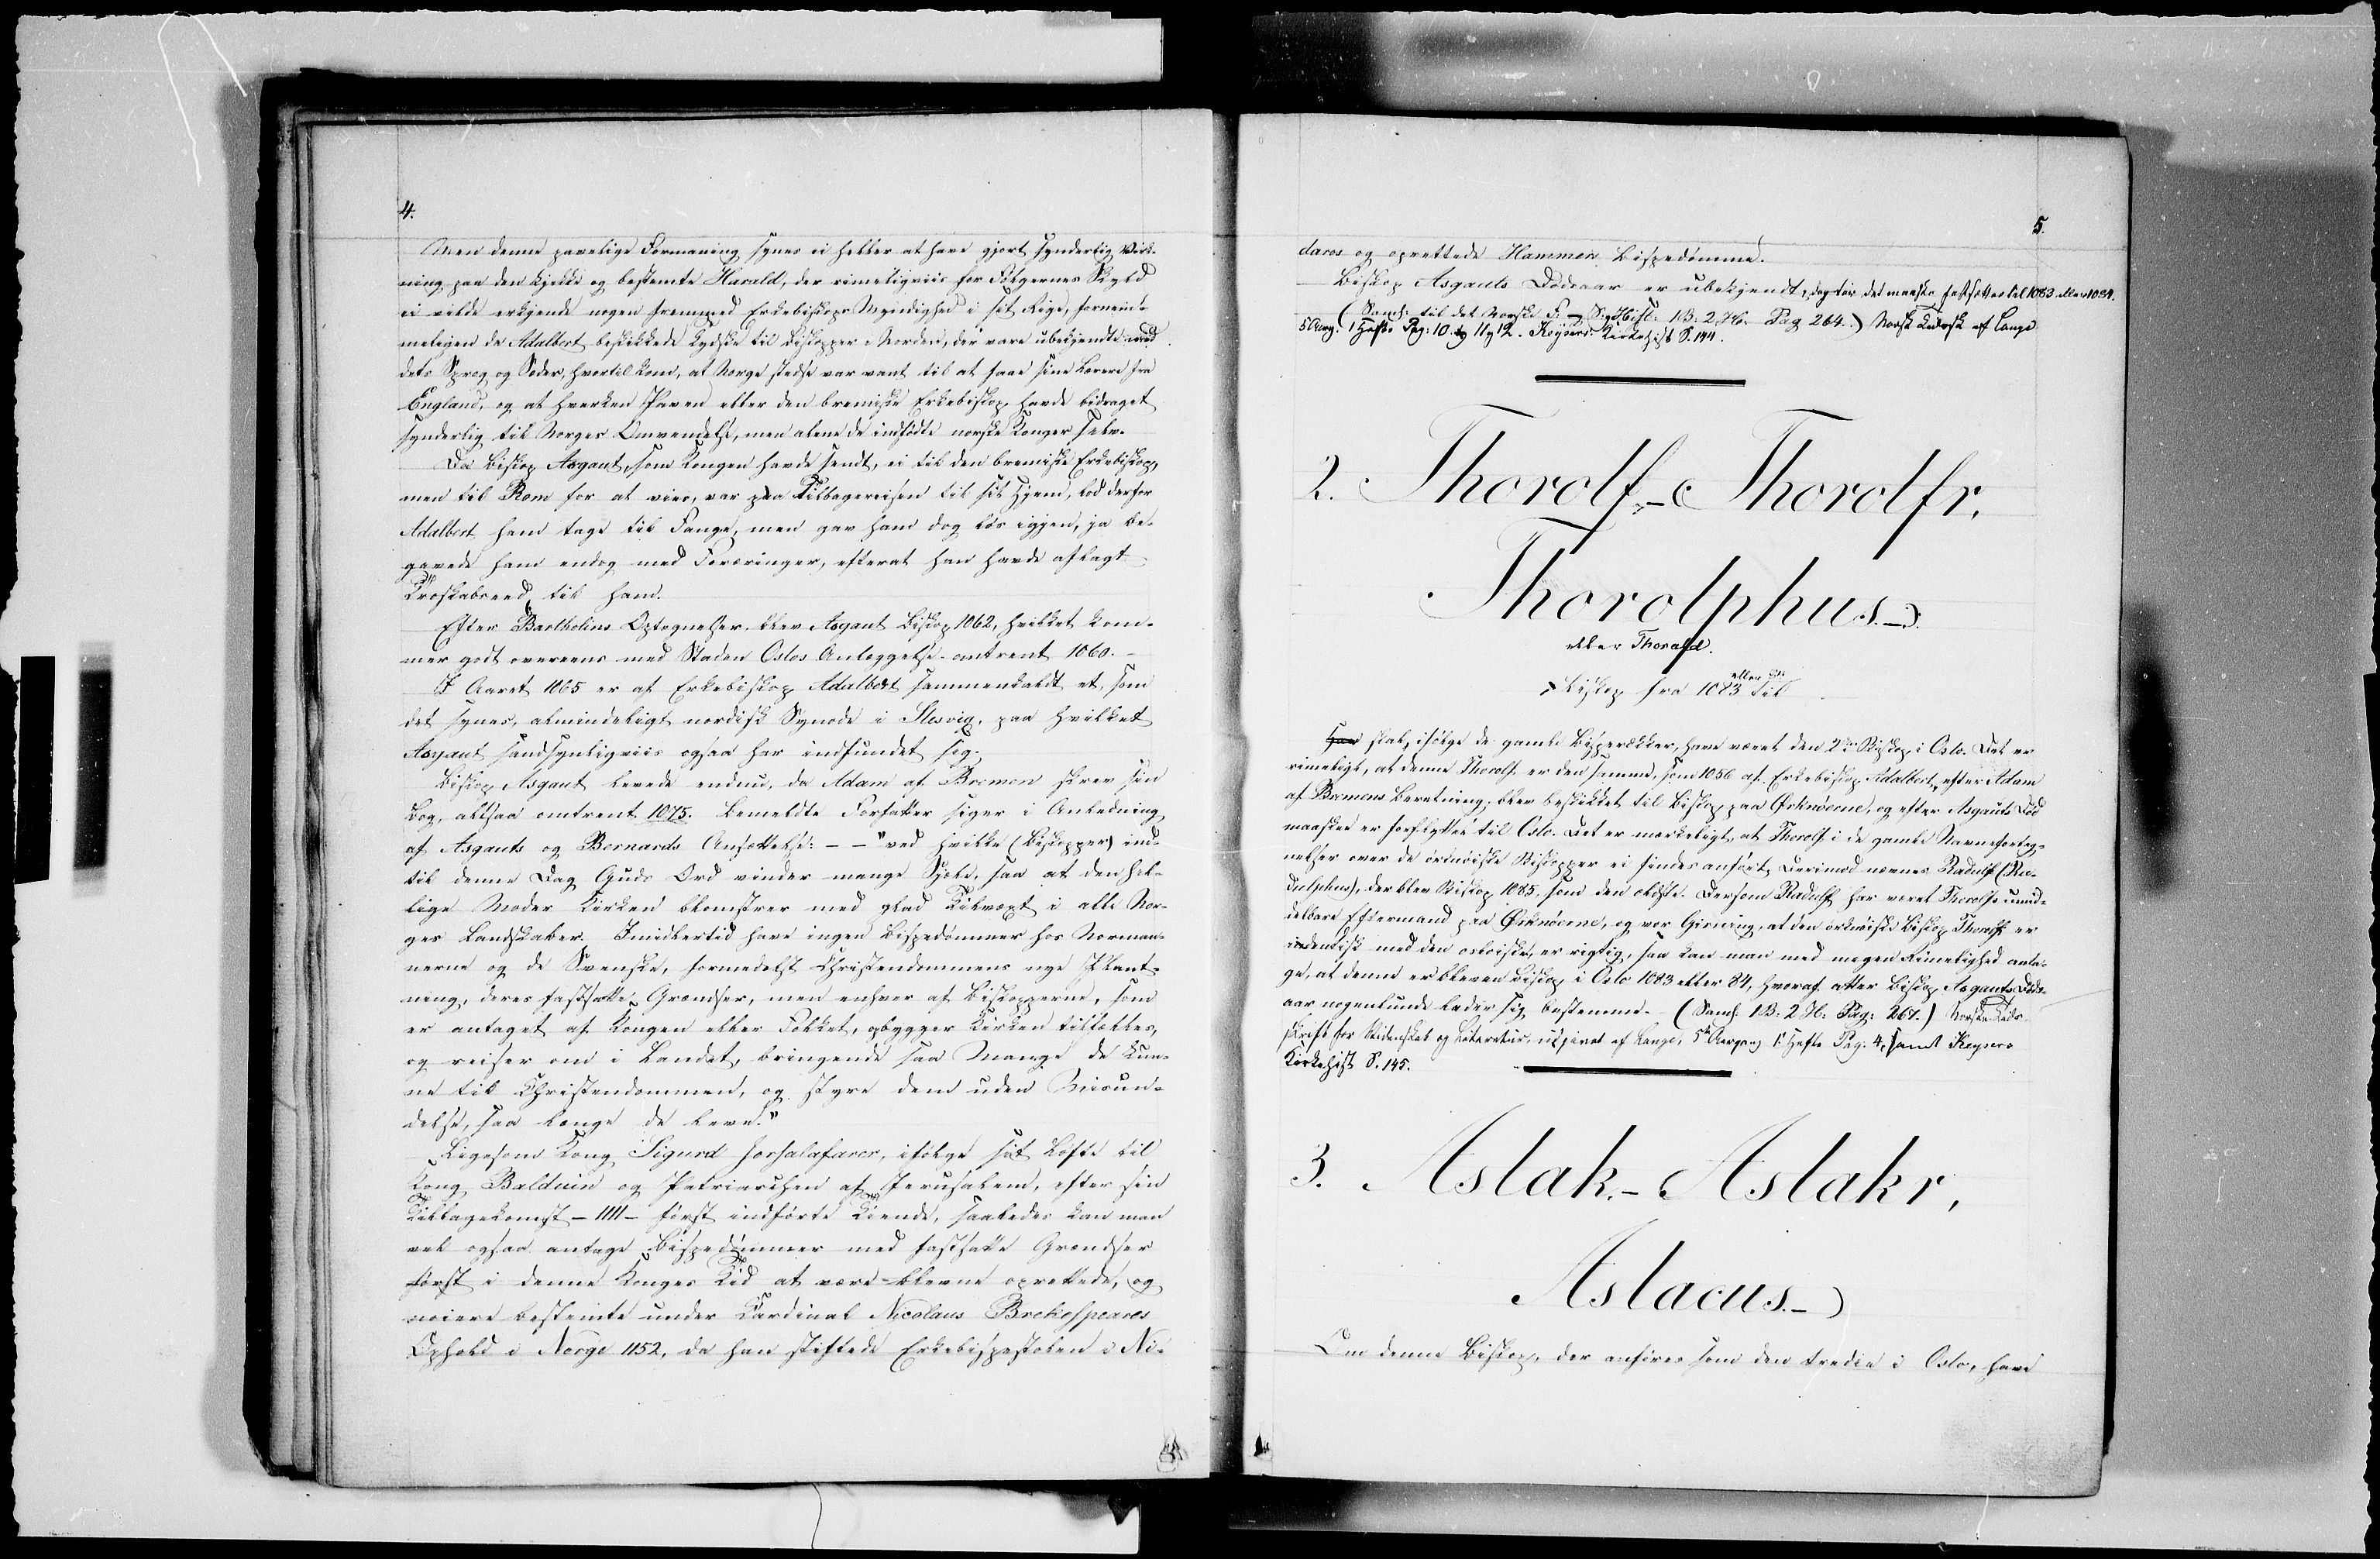 4.
Men denne pavelige Formaning synes ei heller at have gjort synderlig Virk-
ning paa den kjække og bestemte Harald, der rimeligviis for Følgernes Skyld
ei vilde erkjende nogen fremmed Erkebiskops Myndighed i sit Rige, fornem-
meligen da Adalbert beskikkede Tydske til Biskopper i Norden, der vare ubekjendte med
dets Sprog og Sæder, hvortil kom, at Norge stedse var vant til at faae sine Lærere fra
England, og at hverken Paven eller den bremiske Erkebiskop havde bidraget
synderlig til Norges Omvendelse, men alene de indfødte norske Konger selv.
Da Biskop Asgaut, som Kongen havde sendt, ei til den bremiske Erkebiskop,
men til Rom for at vies, var paa Tilbagereisen til sit Hjem, lod derfor
Adalbert ham tage til Fange, men gav ham dog løs igjen, ja be-
gavede ham endog med Foræringer, efterat han havde aflagt
Troskabseed til ham.
Efter Bartholins Optegnelser blev Asgaut Biskop 1062, hvilket kom-
mer godt overeens med Staden Oslos Anlæggelse omtrent 1060.-
I Aaret 1065 er af Erkebiskop Adalbert sammenkaldt et, som
det synes, almindeligt nordisk Synode i Slesvig, paa hvilket
Asgaut sandsynligviis ogsaa har indfundet sig.
Biskop Asgaut levede endnu, da Adam af Bremen skrev sin
Bog, altsaa omtrent 1075. Bemeldte Forfatter siger i Anledning
af Asgauts og Bernards Ansættelse: - - "ved hvilke (Biskopper) ind-
til denne Dag Guds Ord vinder mange Sjæle, saa at den hel-
lige Moder Kirken blomstrer med glad Tilvæxt i alle Nor-
ges Landskaber. Imidlertid have ingen Bispedømmer hos Norman-
nerne og de Svenske, formedelst Christendommens nye Plant-
ning, deres fastsatte Grændser, men enhver af Biskopperne, som
er antaget af Kongen eller Folket, opbygger Kirken tilfælles,
og reiser om i Landet, bringende saa Mange de kun-
ne til Christendommen, og styre dem uden Misun-
delse, saa længe de leve."
Ligesom Kong Sigurd Jorsalafarer, ifølge sit Løfte til
Kong Balduin og Patriarchen af Jerusalem, efter sin
Tilbagekomst - 1111 - først indførte Tiende, saaledes kan man
vel ogsaa antage Bispedømmer med fastsatte Grændser
først i denne Konges Tid at være blevne oprettede, og
nøiere bestemte under Cardinal Nicolaus Brekespeares
Ophold i Norge 1152, da han stiftede Erkebispestolen i Ni-
5.
daros og oprettede Hammers Bispedømme.
Biskop Asgauts Dødsaar er ubekjendt, dog tør det maaske fastsættes til 1083 eller 1084.
(Saml: til det Norske F. og S:gs Hist: 1B: 2H. Pag 264.) Norsk Tidssk af Lange
5 Aarg: 1 Hefte Pag: 10 og 11 og 12. Keysers Kirkehist S. 144.
2. Thorolf,- Thorolfr,
Thorolphus.
eller Thorald.
Biskop fra 1083 eller 84 til
Han skal, ifølge de gamle Bisperækker, have været den 2den Biskop i Oslo. Det er
rimeligt, at denne Thorolf er den samme, som 1056 af Erkebiskop Adalbert, efter Adam
af Bremens Beretning, blev beskikket til Biskop paa Ørknøerne, og efter Asgauts Død
maaskee er forflyttet til Oslo. Det er mærkeligt, at Thorolf i de gamle Navnefortег-
nelser over de ørknøiske Biskopper ei findes anført, derimod nævnes Radulf (Ra-
dulphus), der blev Biskop 1085, som den ældste. Dersom Radulf har været Thorolfs umid-
delbare Eftermand paa Ørknøerne, og vor Gisning, at den ørknøiske Biskop Thorolf er
identisk med den osloiske, er rigtig, saa kan man med megen Rimelighed anta-
ge, at denne er bleven Biskop i Oslo 1083 eller 84, hvoraf atter Biskop Asgauts Døds-
aar nogenlunde lader sig bestemme. (Saml: 1B: 2H: Pag: 264.) Norsk Tids-
skrift for Videnskab og Literatur, udgivet af Lange, 5te Aargang 1: Hefte Pag: 4, samt Keysers
Kirkehist S. 145.
3. Aslak.- Aslakr,
Aslacus.-
Om denne Biskop, der anføres som den tredie i Oslo, have